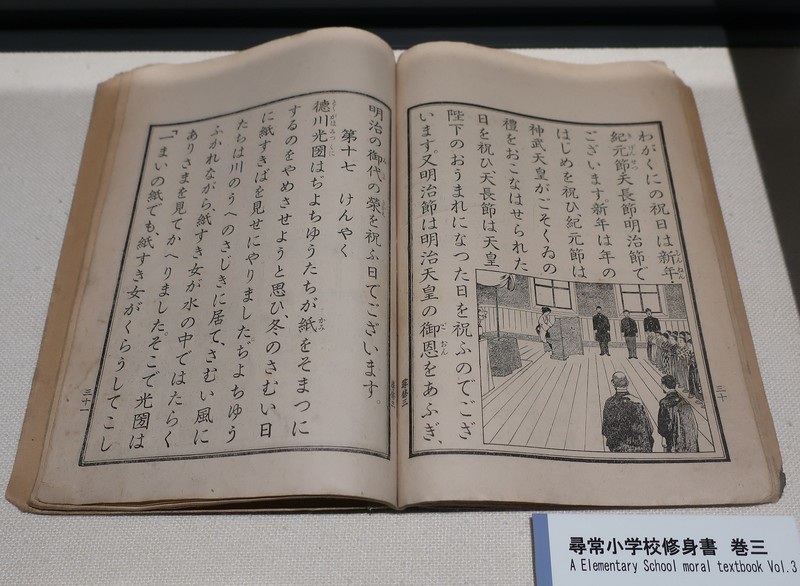 わがくにの祝日は新年、
紀元節、天長節、明治節で
ございます。新年は年の
はじめを祝ひ、紀元節は
神武天皇がごそくゐの
禮をおこなはせられた
日を祝ひ、天長節は天皇
陛下のおうまれになった日を祝ふのでござ
います。又明治節は明治天皇の御恩をあふぎ、
三十
尋修三
明治の御代の榮を祝ふ日でございます。
第十七 けんやく
德川光圀はぢよちゆうたちが紙をそまつに
するのをやめさせようと思ひ、冬のさむい日
に紙すきばを見せにやりました。ぢよちゆう
たちは川のうへのさじきに居て、さむい風に
ふかれながら、紙すき女が水の中ではたらく
ありさまを見てかへりました。そこで光圀は
「一まいの紙でも、紙すき女がくらうしてこし
三十一
尋常小学校修身書 巻三
A Elementary School moral textbook Vol.3